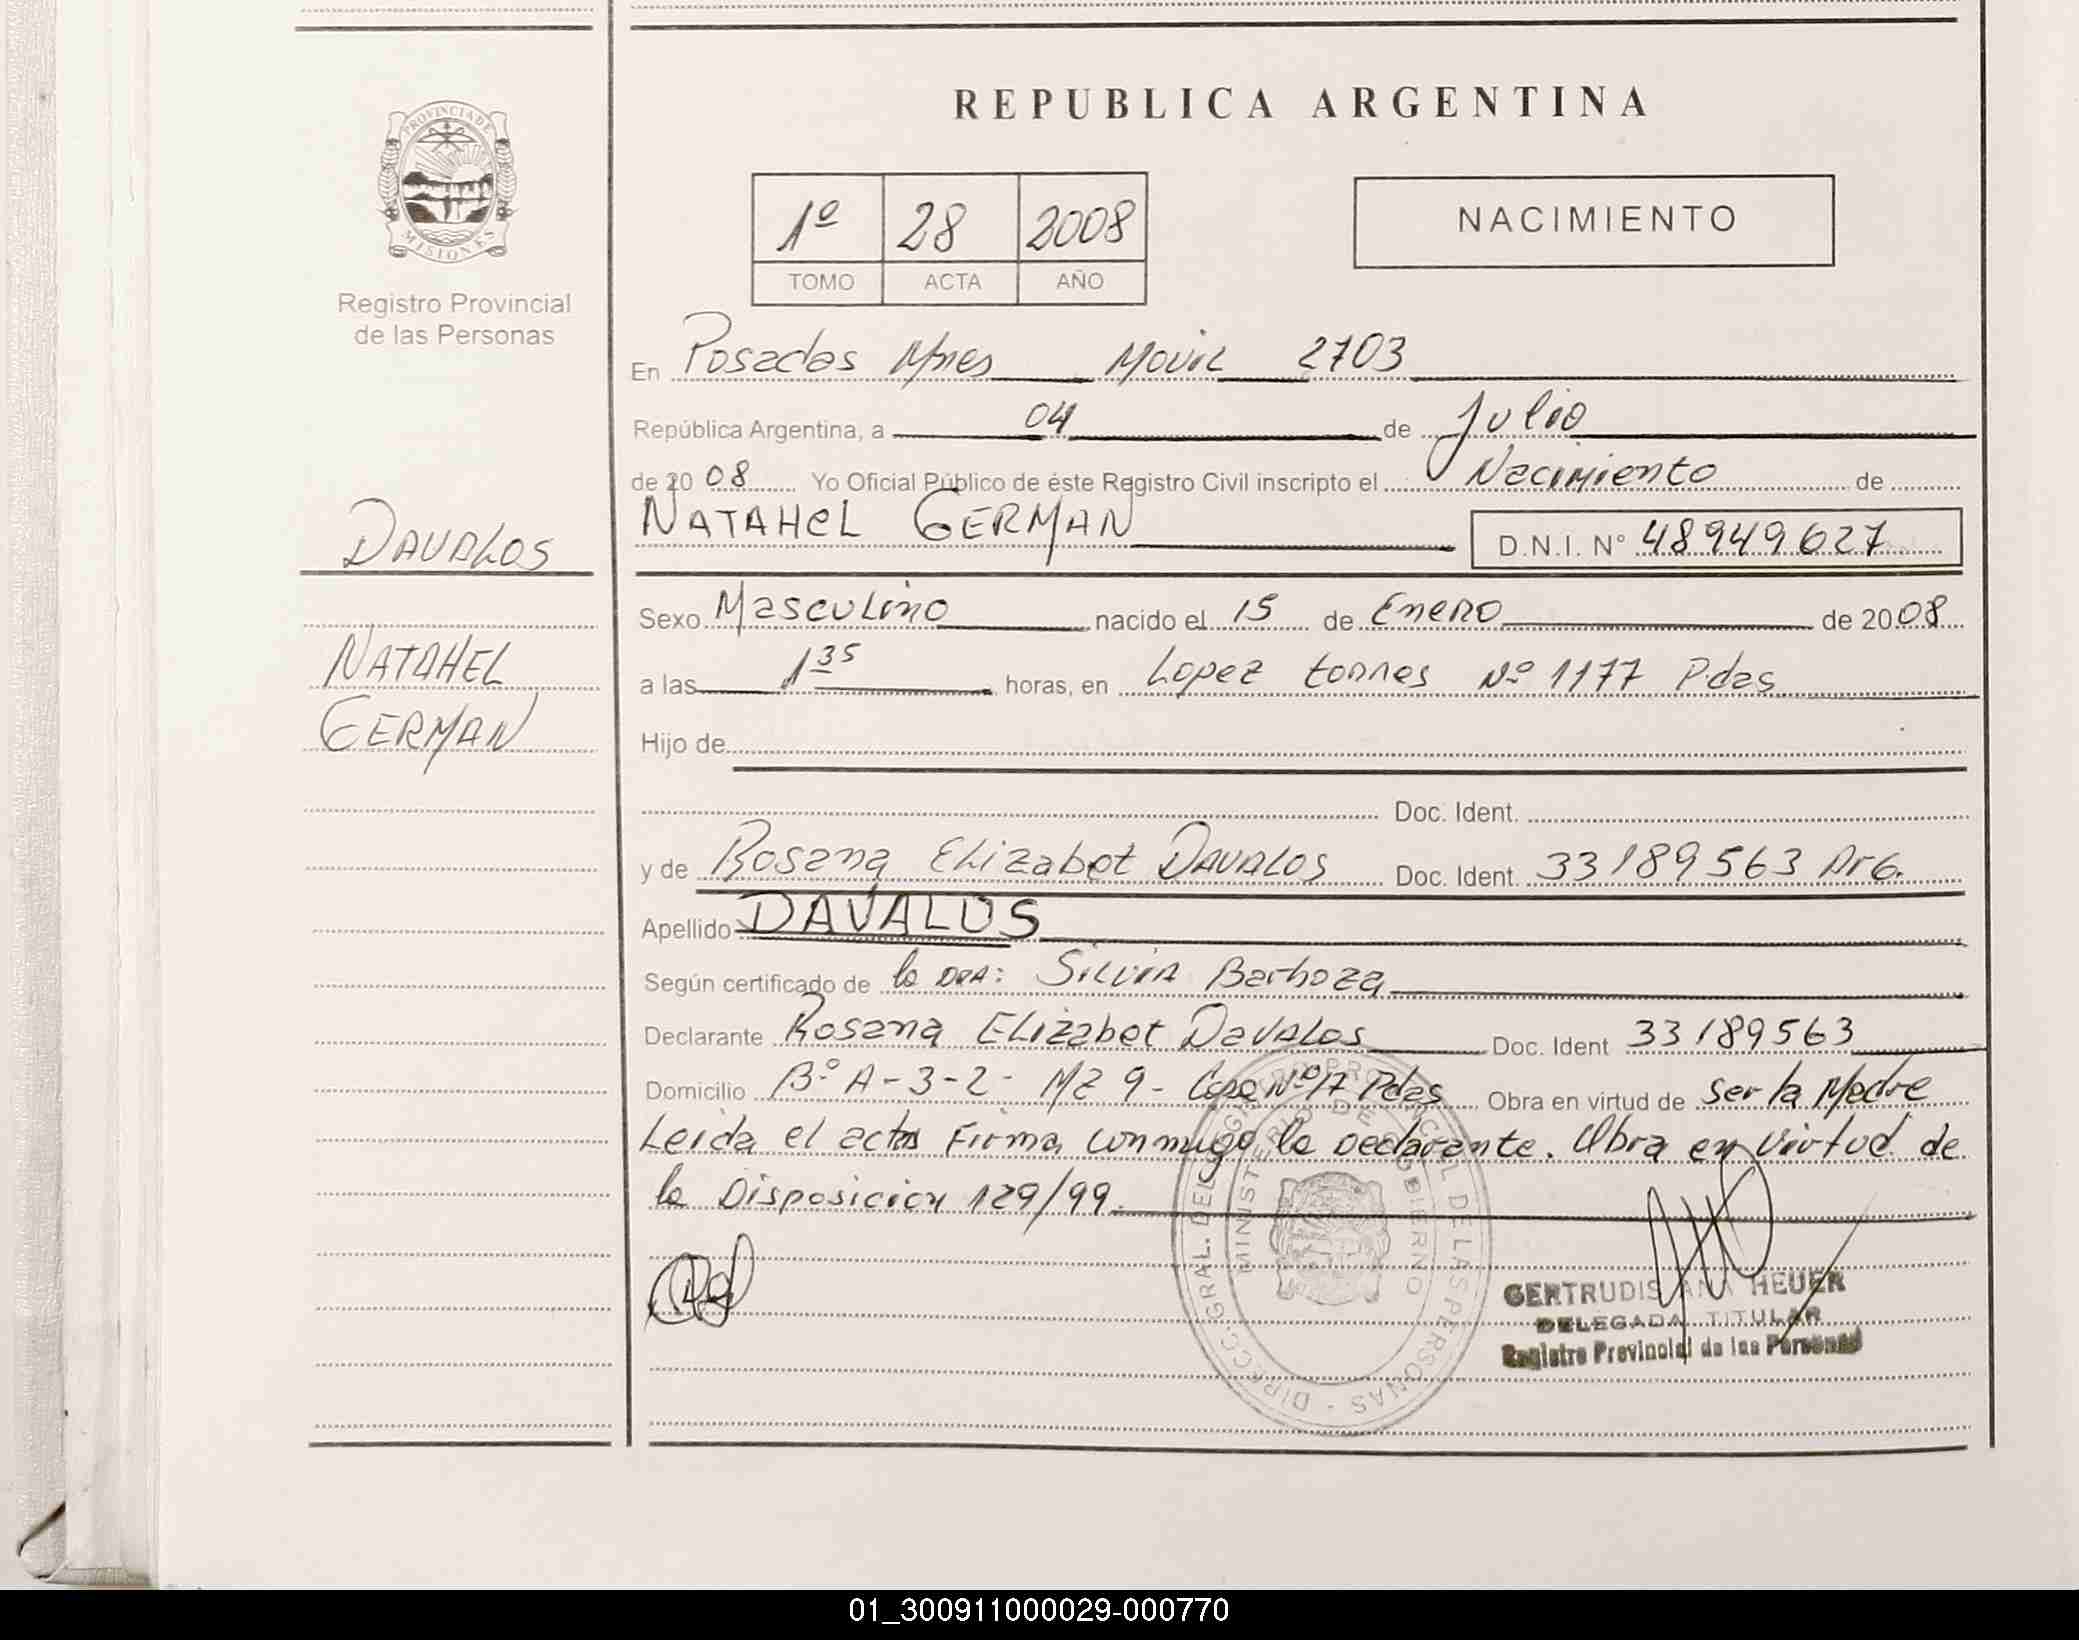 REPUBLICA ARGENTINA
PROVINCIA DE
MISIONES
Registro Provincial
de las Personas
1º 28 2008
TOMO ACTA AÑO
NACIMIENTO
En Posadas Mnes Movil 2703
República Argentina, a 04 de Julio
de 2008 Yo Oficial Público de éste Registro Civil inscripto el Nacimiento de
NATAHEL GERMAN D.N.I. Nº 48949627
DAVALOS
NATAHEL
GERMAN
Sexo Masculino nacido el 15 de Enero de 2008
a las 1 35 horas, en Lopez torres Nº 1177 Pdas
Hijo de
Doc. Ident.
y de Rosana Elizabet DAVALOS Doc. Ident. 33189563 Arg.
Apellido DAVALOS
Según certificado de la DRA: Silvia Barboza
Declarante Rosana Elizabet Davalos Doc. Ident 33189563
Domicilio Bº A-3-2- MZ 9- Casa Nº 17 Pdas Obra en virtud de ser la Madre
Leida el acta Firma conmigo la Declarante. Obra en virtud de
la Disposicion 129/99.
DIRECC. GRAL. DEL REGISTRO PROVINCIAL DE LAS PERSONAS -
MINISTERIO DE GOBIERNO
GERTRUDIS ANA HEUER
DELEGADA TITULAR
Registro Provincial de las Personas
01_300911000029-000770